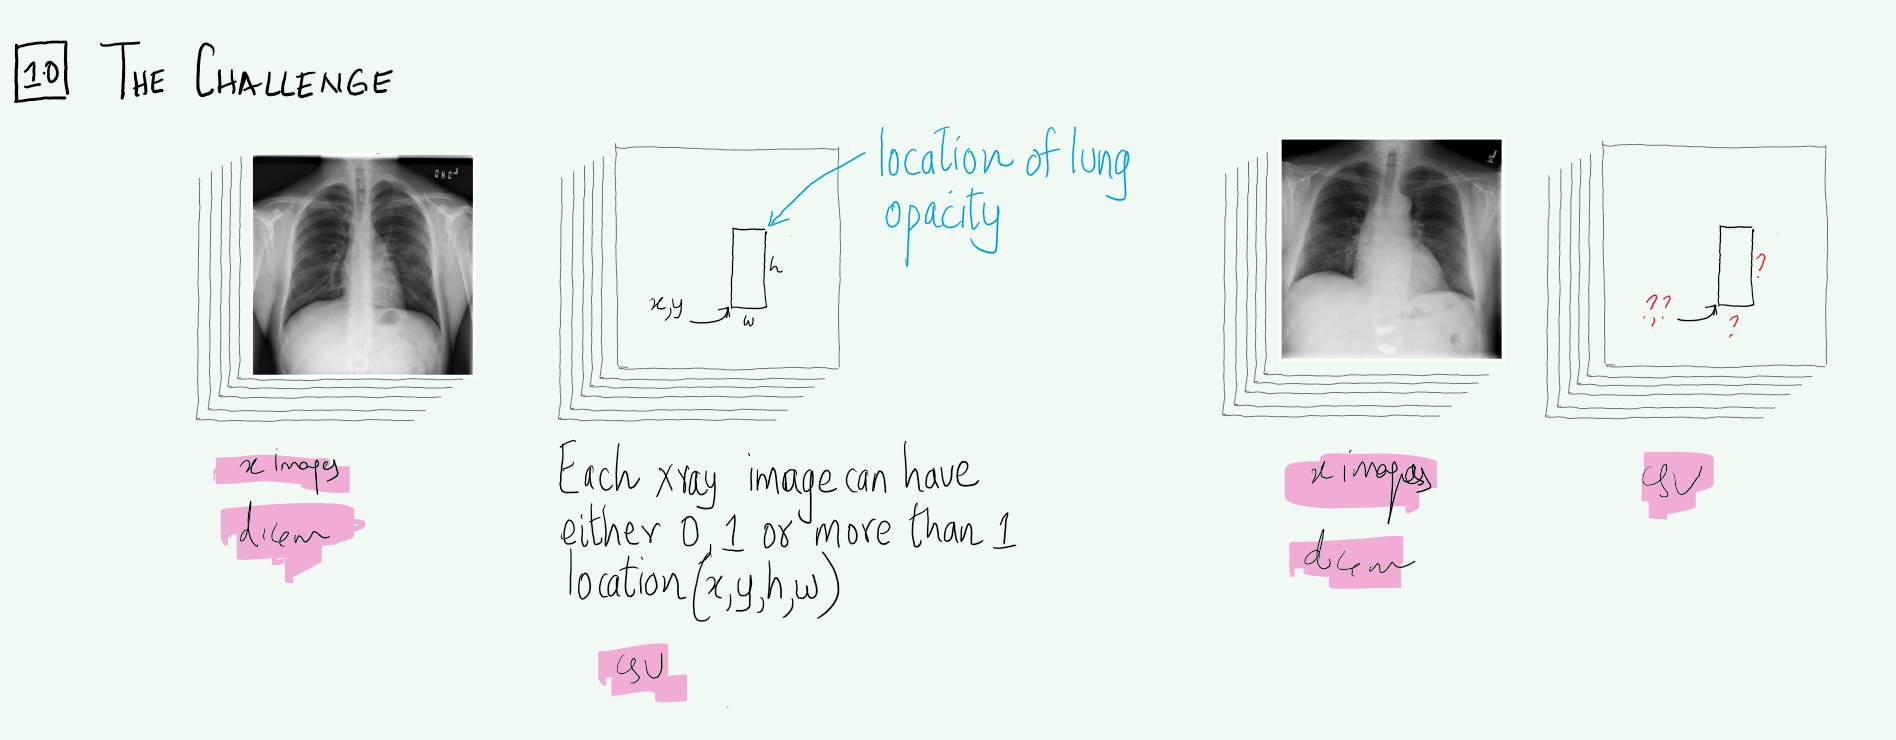 1.0 THE CHALLENGE
location of lung
opacity
h
x,y
w
??
?
?
x images
dicom
Each xray image can have
either 0, 1 or more than 1
location (x,y,h,w)
csv
x images
dicom
csv